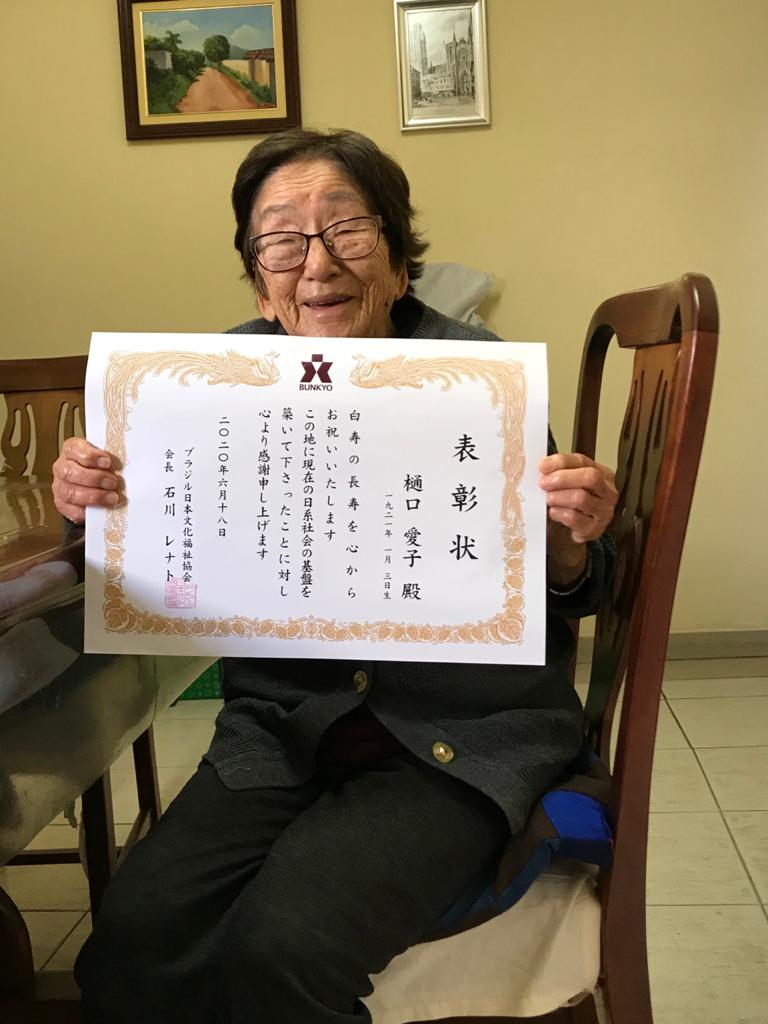 BUNKYO
表彰状
樋口 愛子 殿
一九二一年 一月 三日生
白寿の長寿を心から
お祝いいたします
この地に現在の日系社会の基盤を
築いて下さったことに対し
心より感謝申し上げます
二〇二〇年六月十八日
ブラジル日本文化福祉協会
会長 石川 レナト